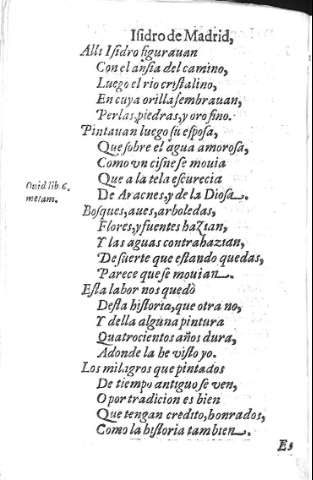 Isidro de Madrid,
Alli Isidro figurauan
Con el ansia del camino,
Luego el rio cristalino,
En cuya orilla sembrauan,
Perlas, piedras, y oro fino.
Pintauan luego su esposa,
Que sobre el agua amorosa,
Como vn cisne se mouia
Que a la tela escurecia
De Aracnes, y de la Diosa.
Ouid. lib. 6.
metam.
Bosques, aues, arboledas,
Flores, y fuentes hazian,
Y las aguas contrahazian,
De suerte que estando quedas,
Parece que se mouian.
Esta labor nos quedò
Desta historia, que otra no,
Y della alguna pintura
Quatrocientos años dura,
Adonde la he visto yo.
Los milagros que pintados
De tiempo antiguo se ven,
O por tradicion es bien
Que tengan credito, honrados,
Como la historia tambien.
Es